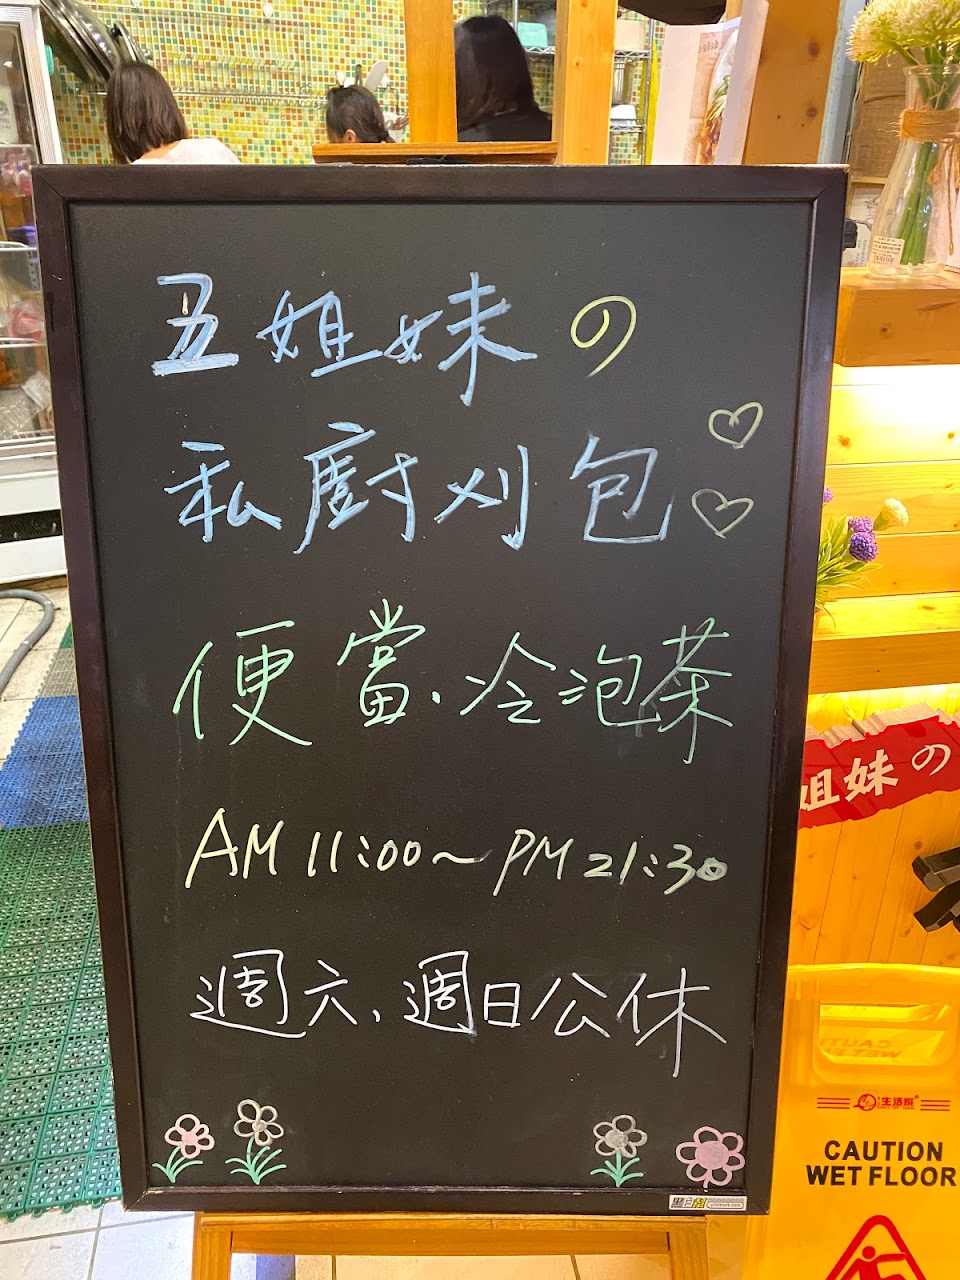 五姐妹の
私廚刈包
便當、冷泡茶
AM 11:00~PM 21:30
週六、週日公休
姐妹の
生活家®
CAUTION
WET FLOOR